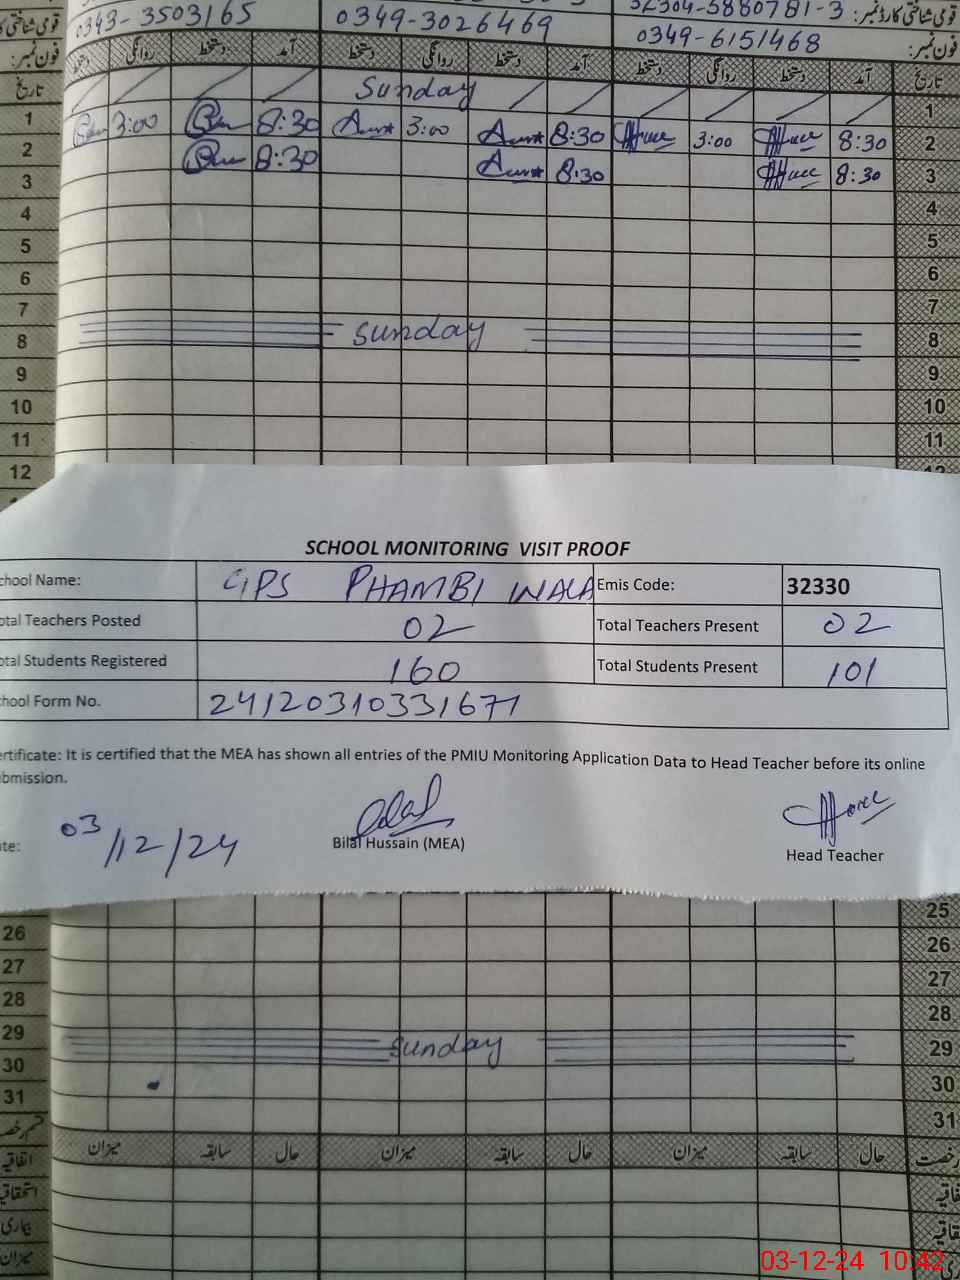 0343-3503165 0349-3026469 32304-5880781-3 قومی شناختی کارڈ نمبر:
0349-6151468 فون نمبر:
دستخط روانگی دستخط آمد دستخط روانگی دستخط آمد دستخط روانگی دستخط آمد تاریخ
1 Sunday 1
2 3:00 8:30 3:00 8:30 3:00 8:30 2
3 8:30 8:30 8:30 3
4 4
5 5
6 6
7 7
8 Sunday 8
9 9
10 10
11 11
12 12
SCHOOL MONITORING VISIT PROOF
chool Name: GPS PHAMBI WALA Emis Code: 32330
otal Teachers Posted 02 Total Teachers Present 02
otal Students Registered 160 Total Students Present 101
chool Form No. 24120310331671
ertificate: It is certified that the MEA has shown all entries of the PMIU Monitoring Application Data to Head Teacher before its online
bmission.
ate: 03/12/24
Bilal Hussain (MEA) Head Teacher
25
26 26
27 27
28 28
29 Sunday 29
30 30
31 31
میزان سابقہ حال میزان سابقہ حال میزان سابقہ حال رخصت
اتفاقیہ
استحقاقیہ
بیماری
میزان
03-12-24 10:42